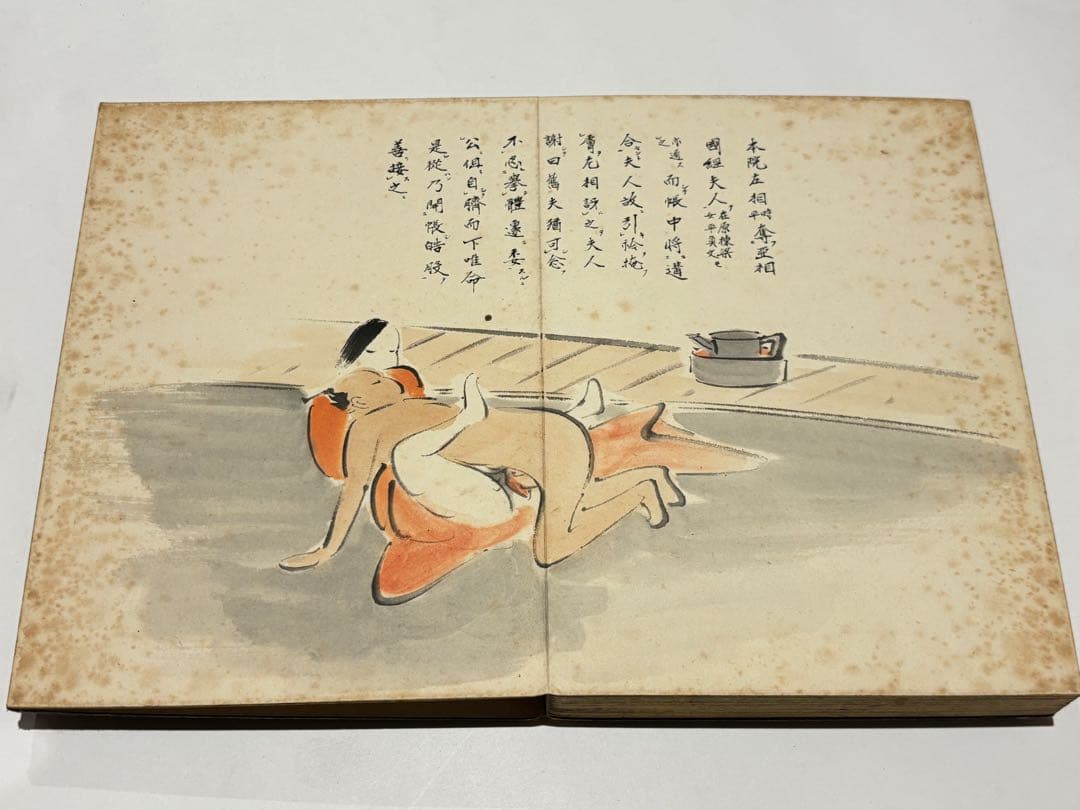 本院左相時平奪亞相
國經夫人在原棟梁女平貞文
亦通之而帳中將遺
合夫人故引袷掩
賡尤相訝之夫人
謝曰舊夫猶可念
不忍擧體遽委
公俱自臍而下唯命
是從乃開帳皓股
善接之